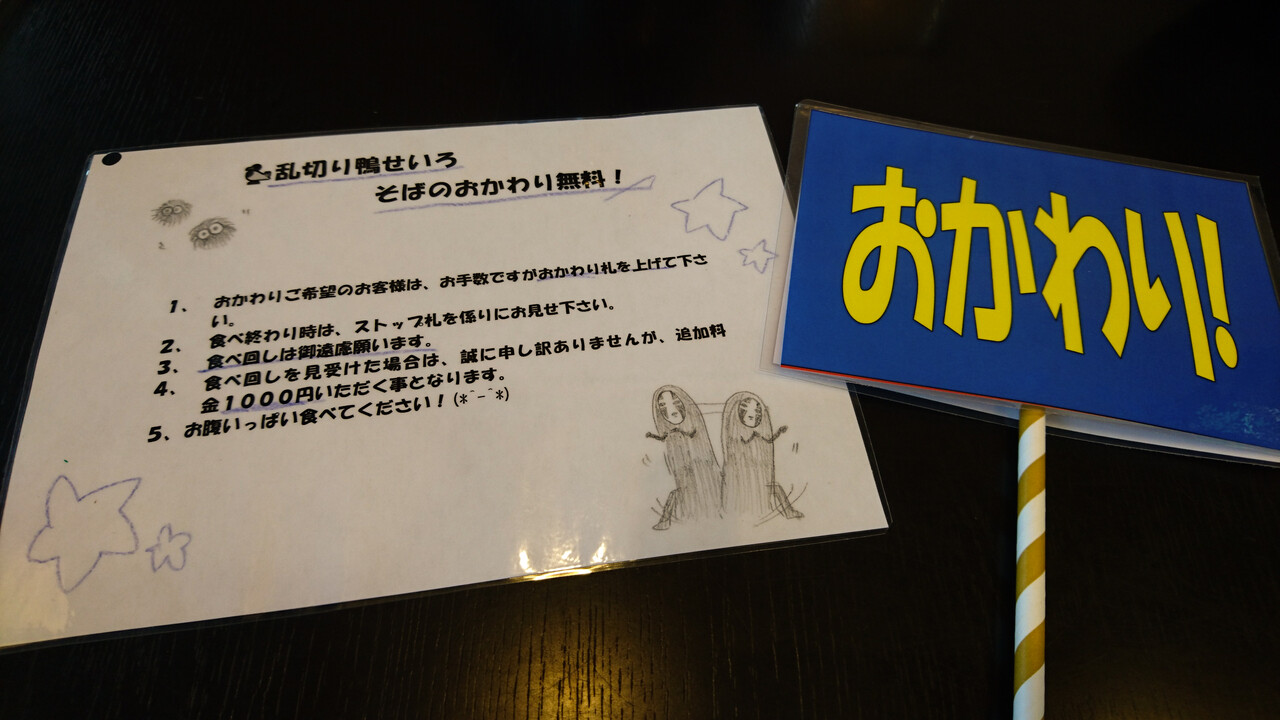 乱切り鴨せいろ
そばのおかわり無料！
1、 おかわりご希望のお客様は、お手数ですがおかわり札を上げて下さ
い。
2、 食べ終わり時は、ストップ札を係りにお見せ下さい。
3、 食べ回しは御遠慮願います。
4、 食べ回しを見受けた場合は、誠に申し訳ありませんが、追加料
金１０００円いただく事となります。
5、お腹いっぱい食べてください！(*^-^*)
おかわり!